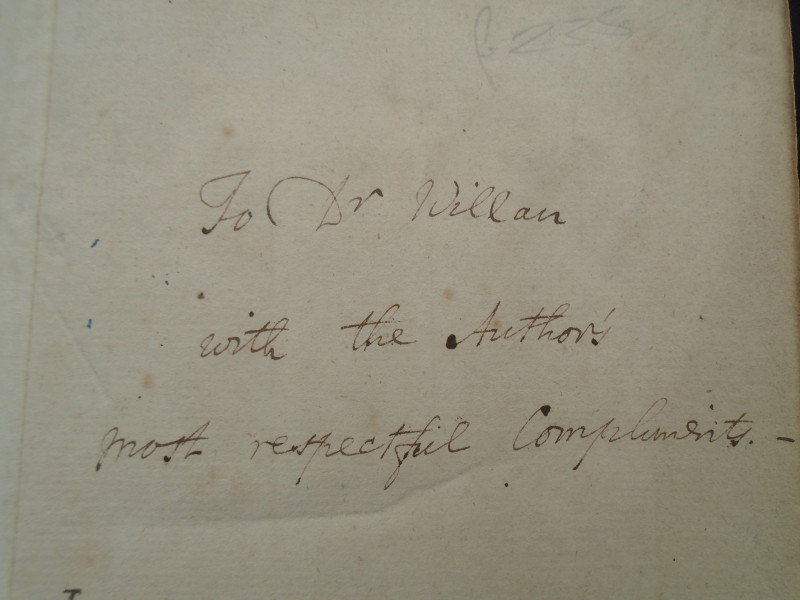 To Dr Willan
with the Author's
most respectful Compliments. -